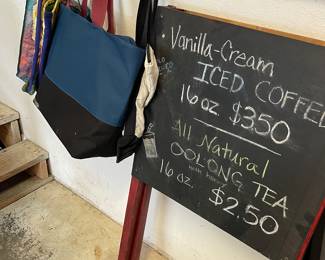 Vanilla-Cream
ICED COFFEE
16 oz. $3.50
All Natural
OOLONG TEA
16 oz. $2.50